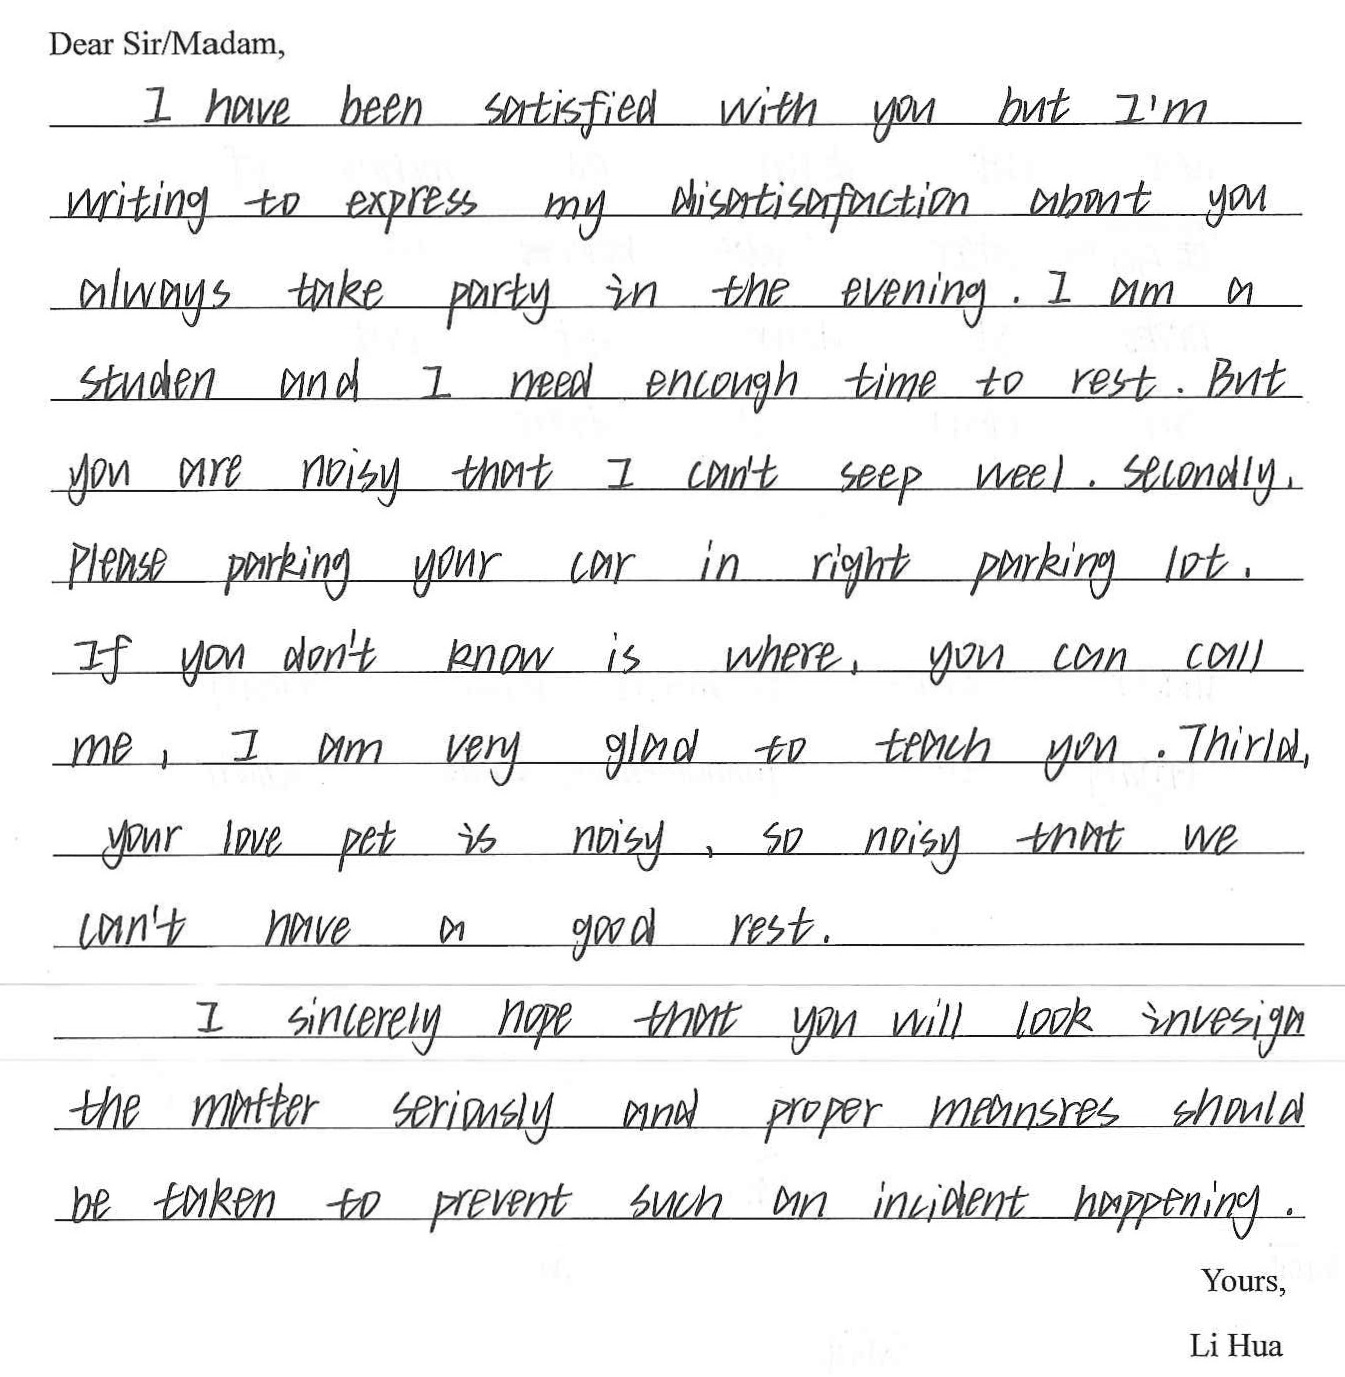 Dear Sir/Madam,
I have been satisfied with you but I'm
writing to express my disatisafaction about you
always take party in the evening. I am a
studen and I need encough time to rest. But
you are noisy that I can't seep weel. Secondly,
Please parking your car in right parking lot.
If you don't know is where, you can call
me, I am very glad to teach you. Thirld,
your love pet is noisy, so noisy that we
can't have a good rest.
I sincerely hope that you will look invesiga
the matter seriously and proper meansres should
be taken to prevent such an incident happening.
Yours,
Li Hua